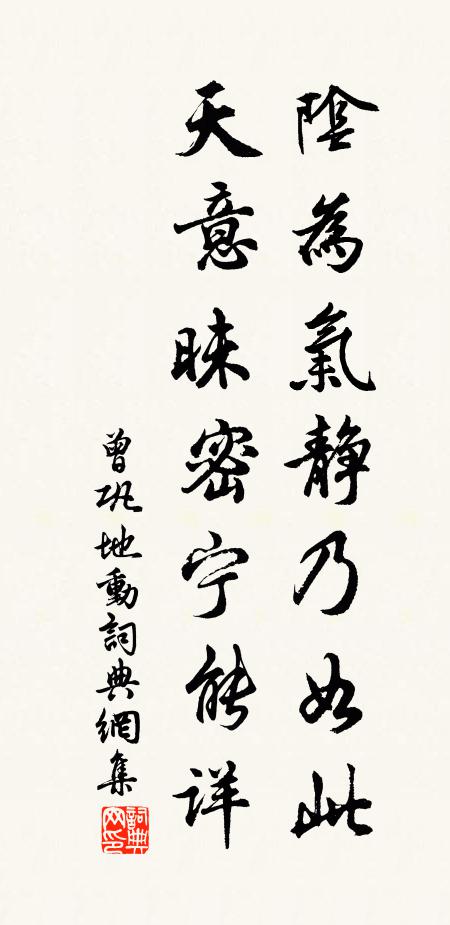 陰為氣靜乃如此
天意昧密宁能详
曾巩地動詞典網集
詞典网印